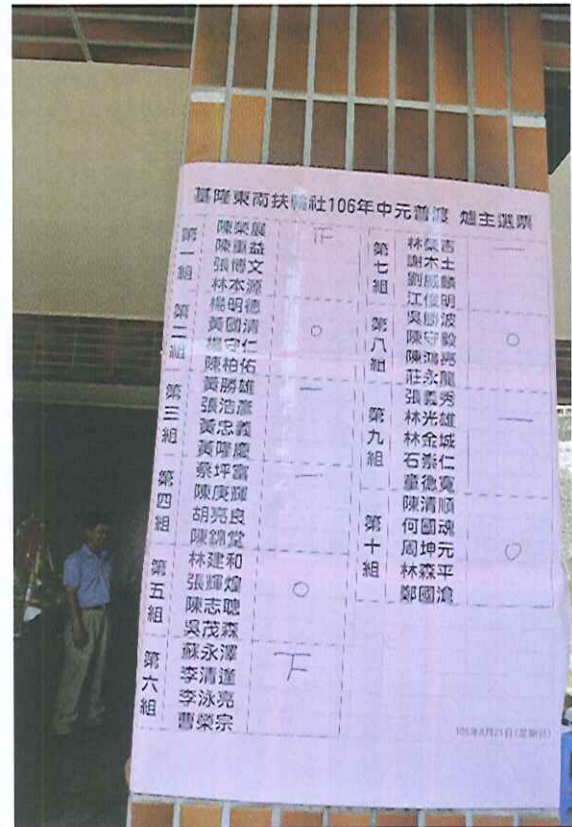 基隆東南扶輪社106年中元普渡 爐主選票
第一組
陳榮展
陳重益
張博文
林本源
正
第二組
楊明德
黃國清
楊守仁
陳柏佑
○
第三組
黃勝雄
張浩彥
黃忠義
黃隆慶
一
第四組
蔡坪富
陳庚輝
胡亮良
陳錦堂
一
第五組
林建和
張輝煌
陳志聰
吳茂森
○
第六組
蘇永澤
李清進
李泳亮
曹榮宗
下
第七組
林榮吉
謝木土
劉威麟
江俊明
一
第八組
吳勝波
陳守毅
陳鴻亮
莊永龍
○
第九組
張義秀
林光雄
林金城
石崇仁
童德寬
一
第十組
陳清順
何國魂
周坤元
林森平
鄭國滄
○